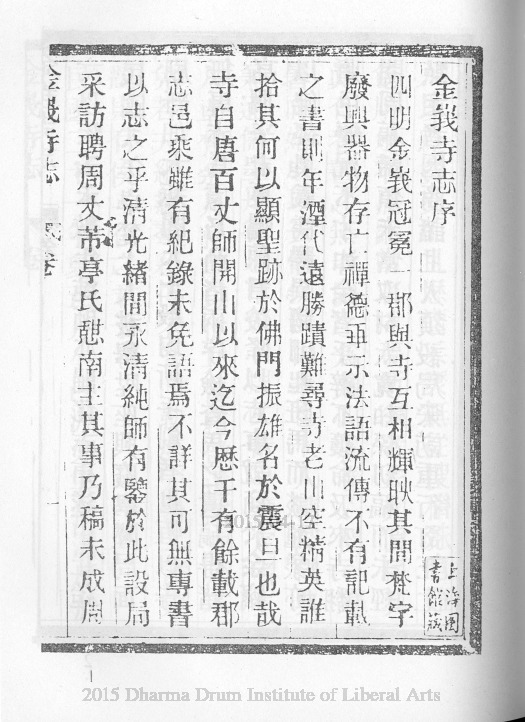 金峩寺志序
四明金峩冠冕一郡與寺互相輝映其間梵宇
廢興器物存亡禪德垂示法語流傳不有記載
之書則年湮代遠勝蹟難尋寺老山空精英誰
拾其何以顯聖跡於佛門振雄名於震旦也哉
寺自唐百丈師開山以來迄今歷千有餘載郡
志邑乘雖有紀錄未免語焉不詳其可無專書
以志之乎清光緒間永清純師有鑒於此設局
采訪聘周丈芾亭氏憇南主其事乃稿未成周
金峩寺志
卷
上海圖
書館藏
2015-04-1
2015 Dharma Drum Institute of Liberal Arts